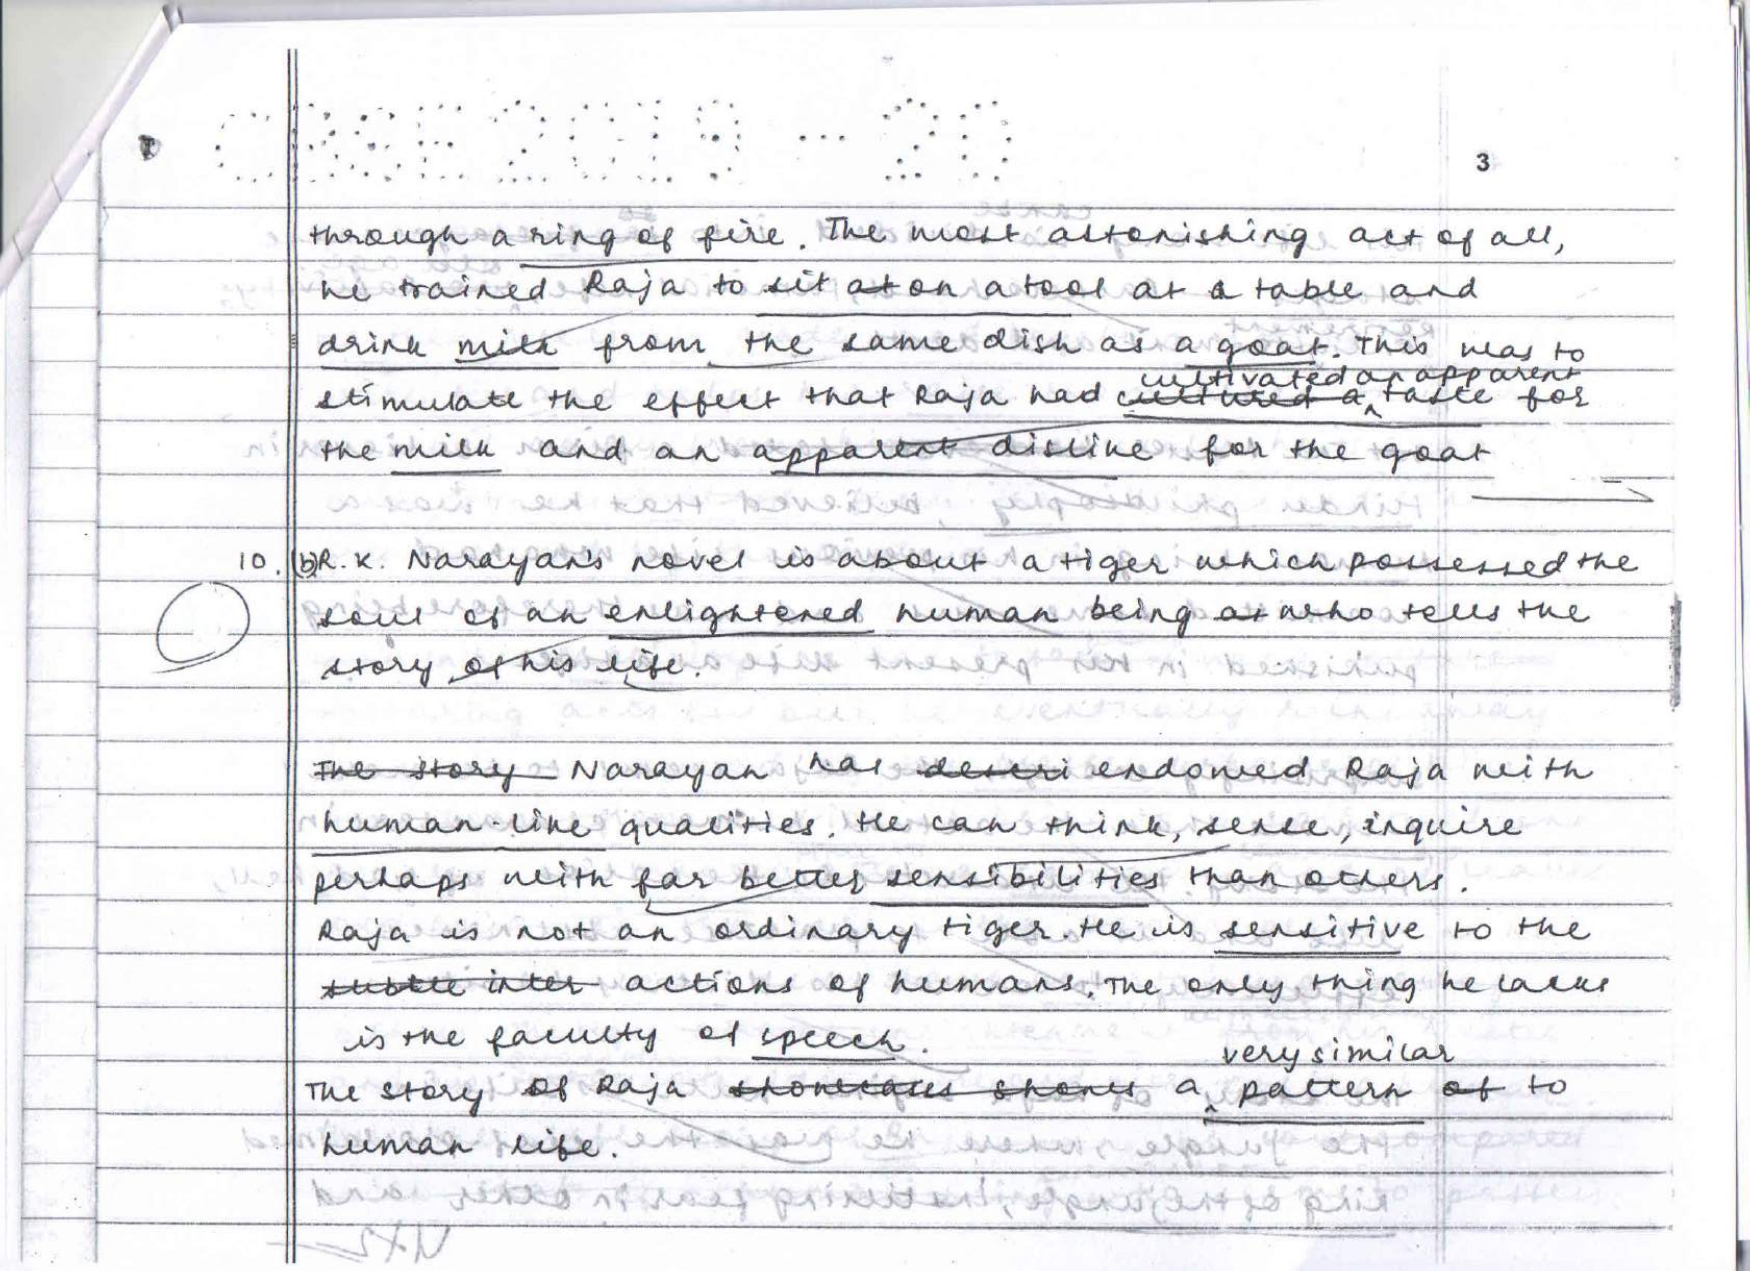 CBSE 2019 - 20
3
through a ring of fire. The most astonishing act of all,
he trained Raja to sit at on a tool at a table and
drink milk from the same dish as a goat. This was to
cultivated an apparent
stimulate the effect that Raja had cultured a taste for
the milk and an apparent dislike for the goat
10. (b) R. K. Narayan's novel is about a tiger which possessed the
soul of an enlightened human being at who tells the
story of his life.
The story Narayan has descri endowed Raja with
human-like qualities. He can think, sense, inquire
perhaps with far better sensibilities than others.
Raja is not an ordinary tiger. He is sensitive to the
subtle inter actions of humans. The only thing he lacks
is the faculty of speech.
very similar
The story of Raja showcases shows a pattern of to
human life.